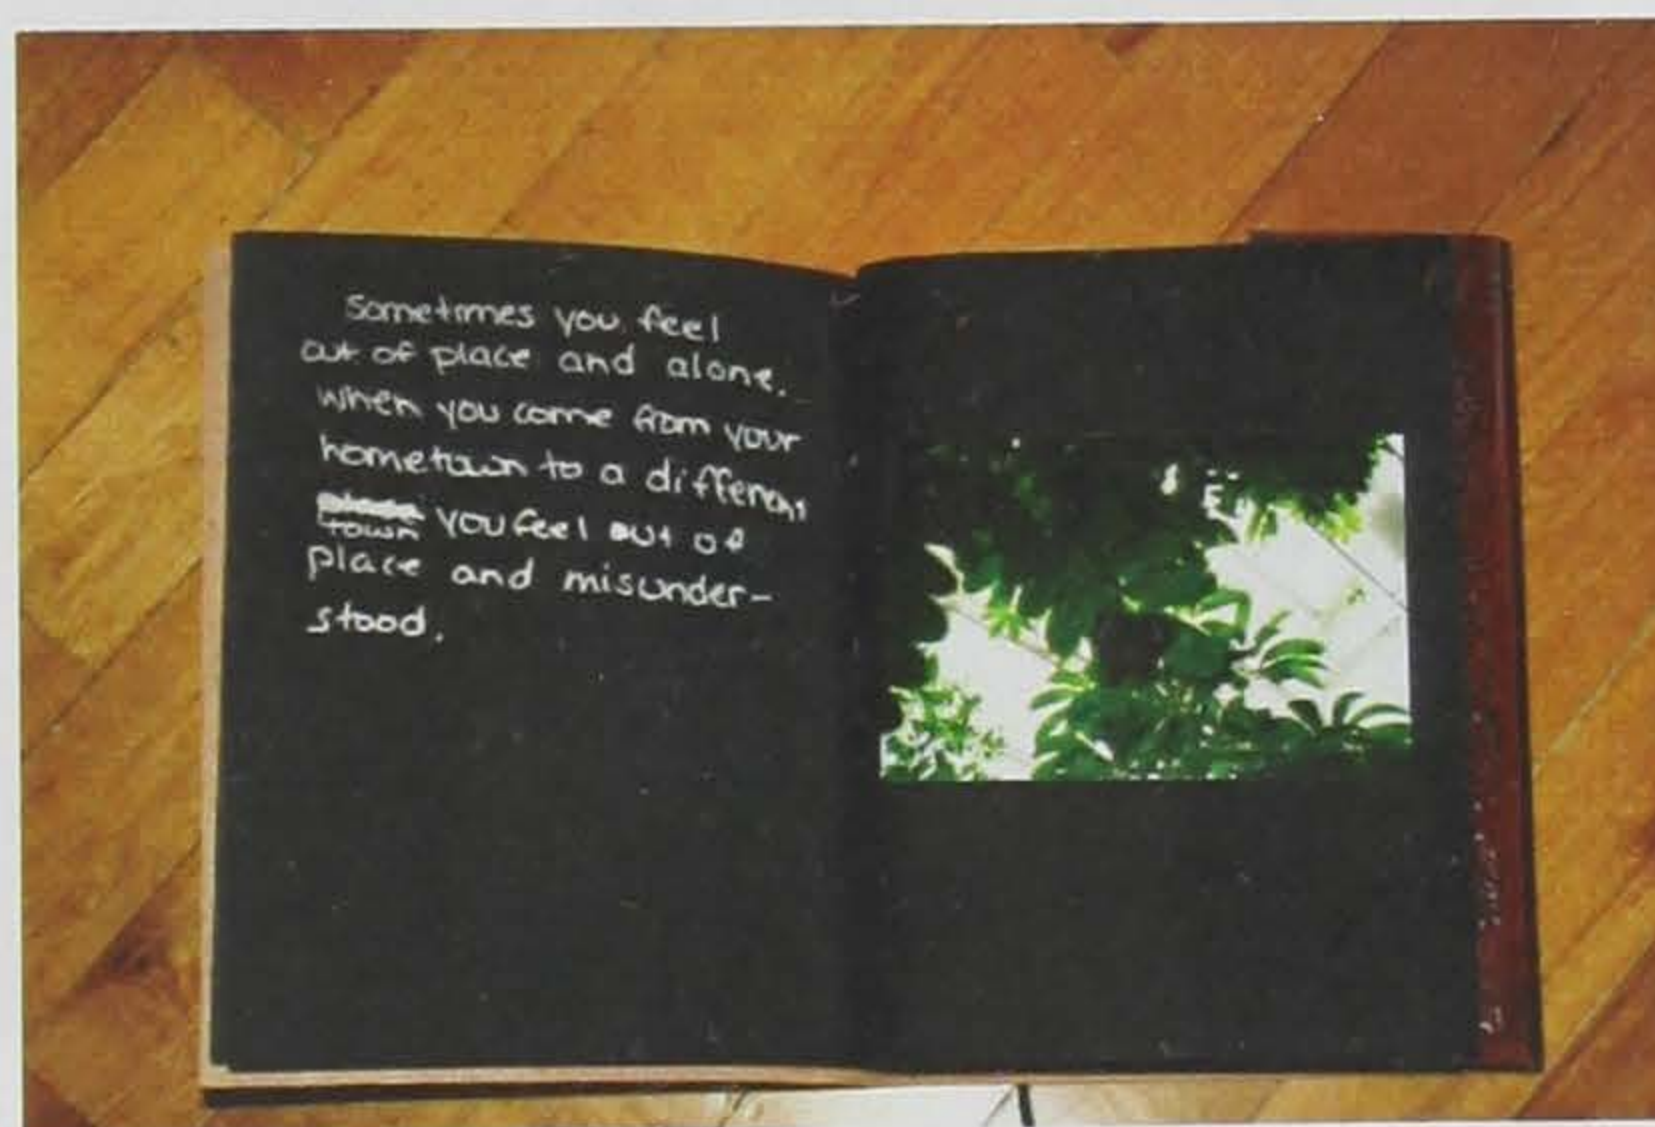 Sometimes you feel
out of place and alone.
When you come from your
hometown to a different
town you feel out of
place and misunder-
stood.